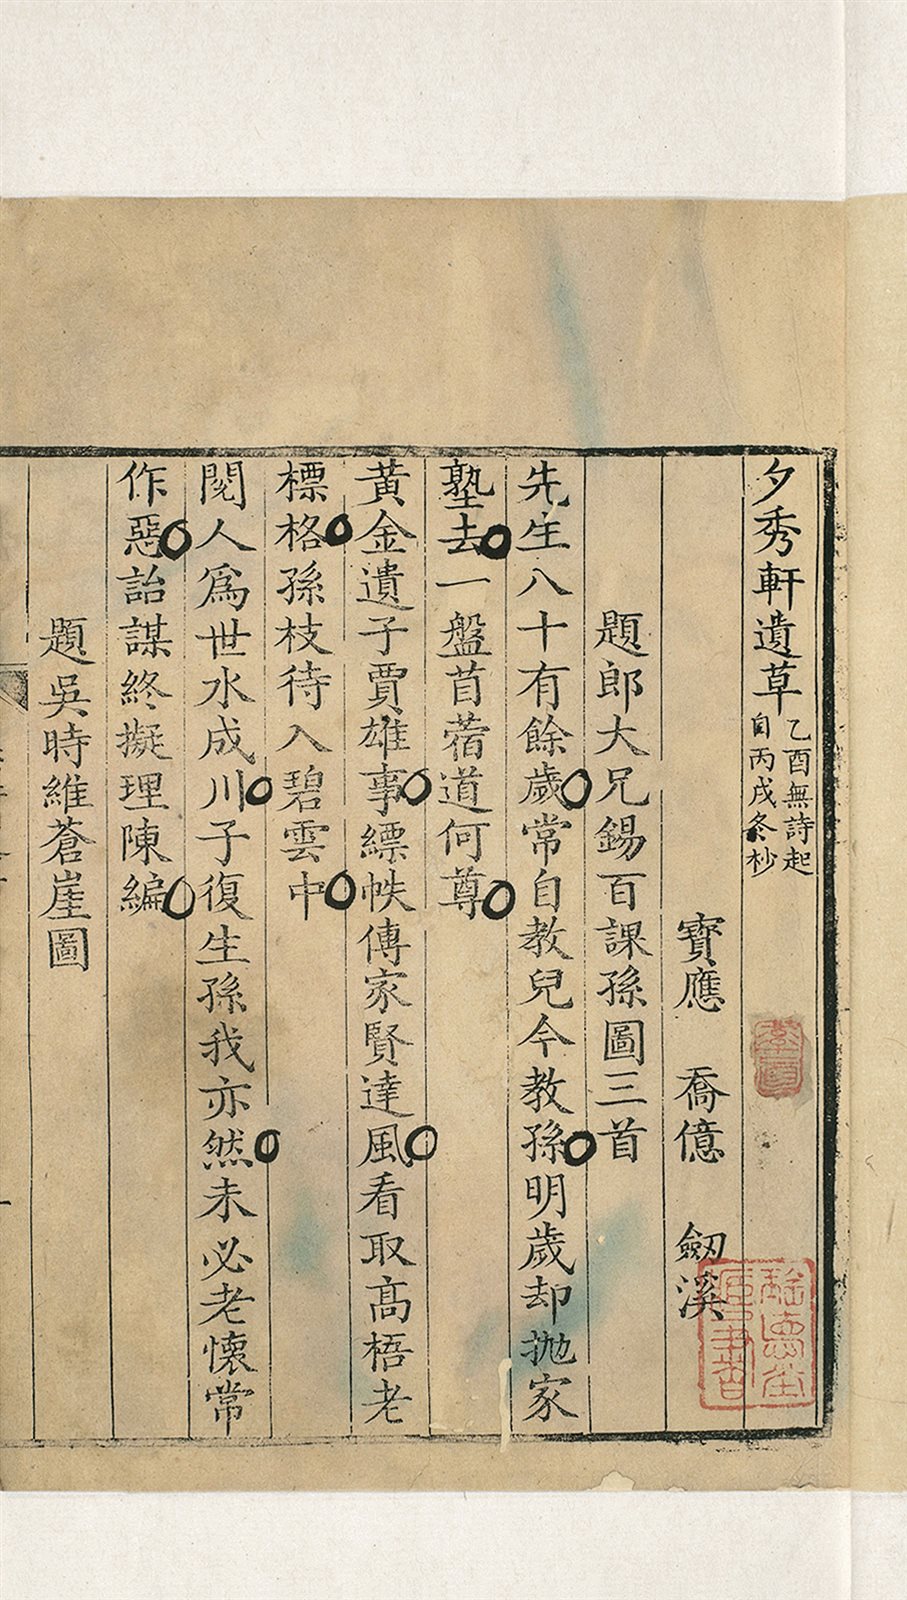 夕秀軒遺草乙酉無詩起自丙戌冬杪
寶應 喬億 劔溪
題郎大兄錫百課孫圖三首
先生八十有餘歲常自教兒今教孫明歲却拋家
塾去一盤苜蓿道何尊
黃金遺子賈雄事縹帙傳家賢達風看取高梧老
標格孫枝待入碧雲中
閱人爲世水成川子復生孫我亦然未必老懷常
作惡詒謀終擬理陳編
題吳時維蒼崖圖